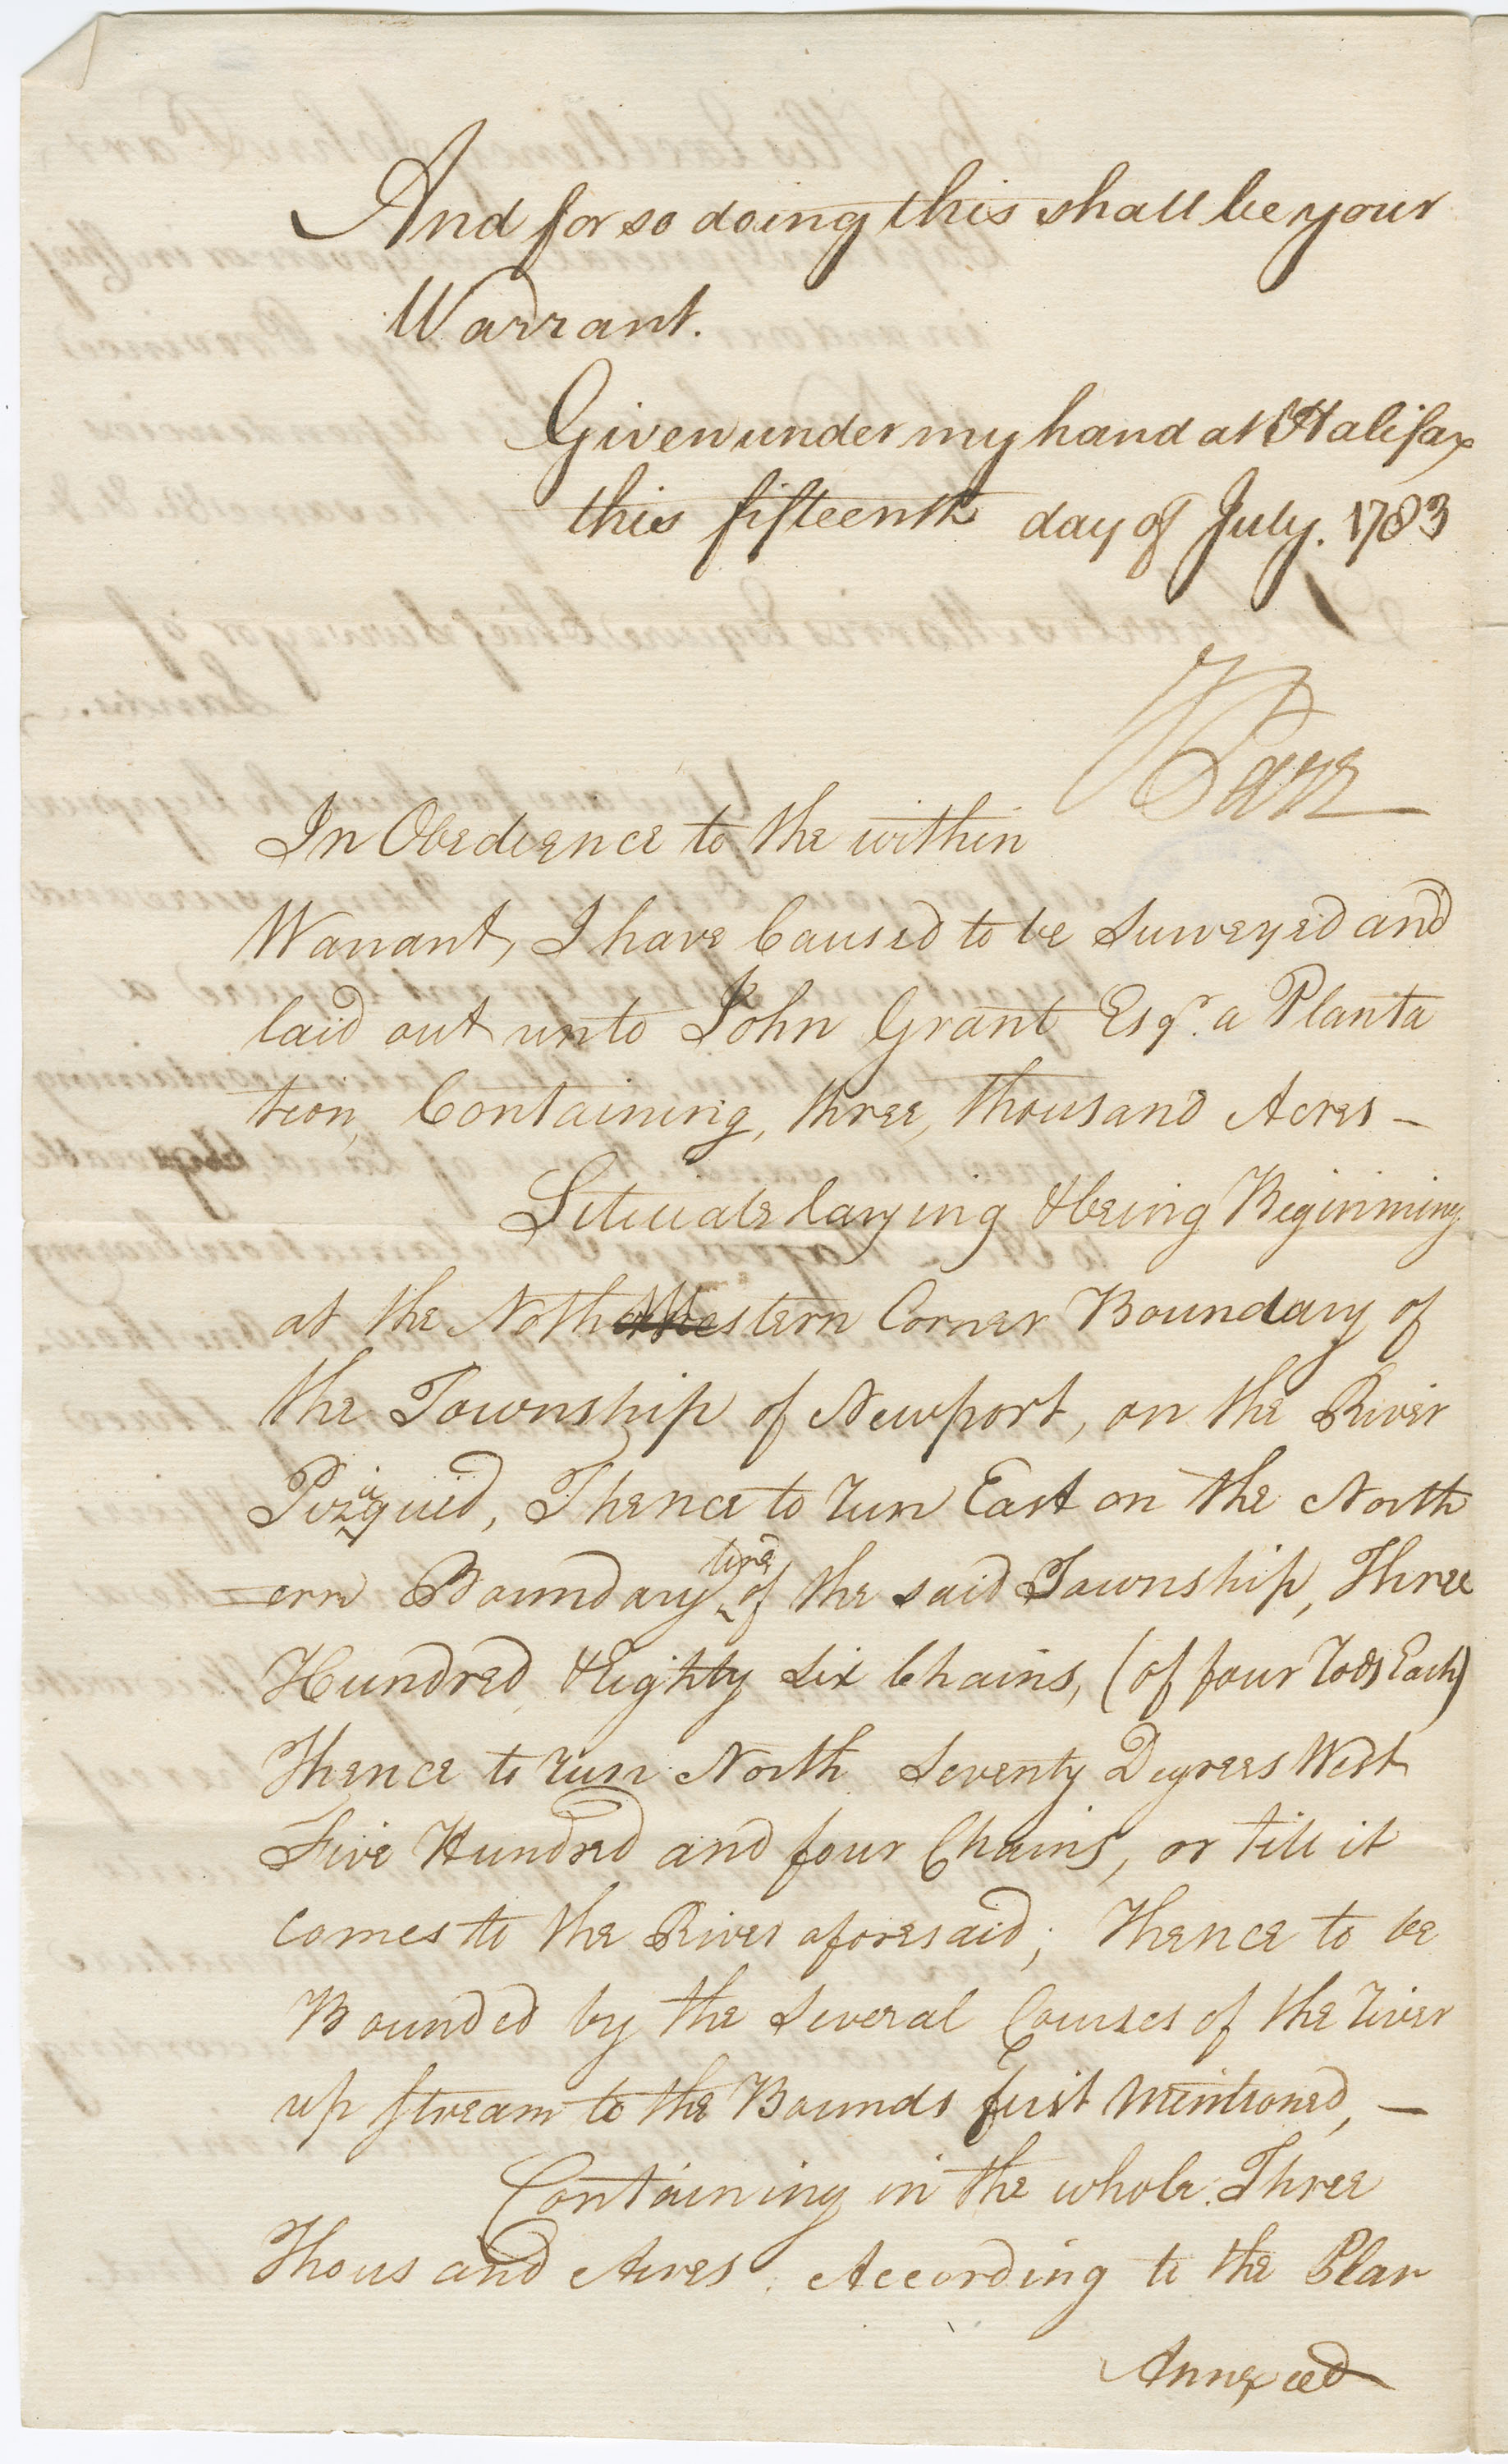 And for so doing this shall be your
Warrant.
Given under my hand at Halifax
this fifteenth day of July. 1783
J Parr
In Obedience to the within
Warrant, I have Caused to be Surveyed and
laid out unto John Grant Esqr. a Planta
tion, Containing, three, thousand Acres –
Situate laying & being Beginning
at the North Western Corner Boundary of
the Township of Newport, on the River
Pizaquid, Thence to run East on the North
=ern Boundary line of the said Township, Three
Hundred & Eighty Six Chains, (of four rods Each)
Thence to run North Seventy Degrees West
Five Hundred and four Chains, or till it
comes to the River aforesaid; Thence to be
Bounded by the Several Courses of the river
up stream to the Bounds first Mentioned, –
Containing in the whole. Three
Thousand Acres. According to the Plan
Annexed